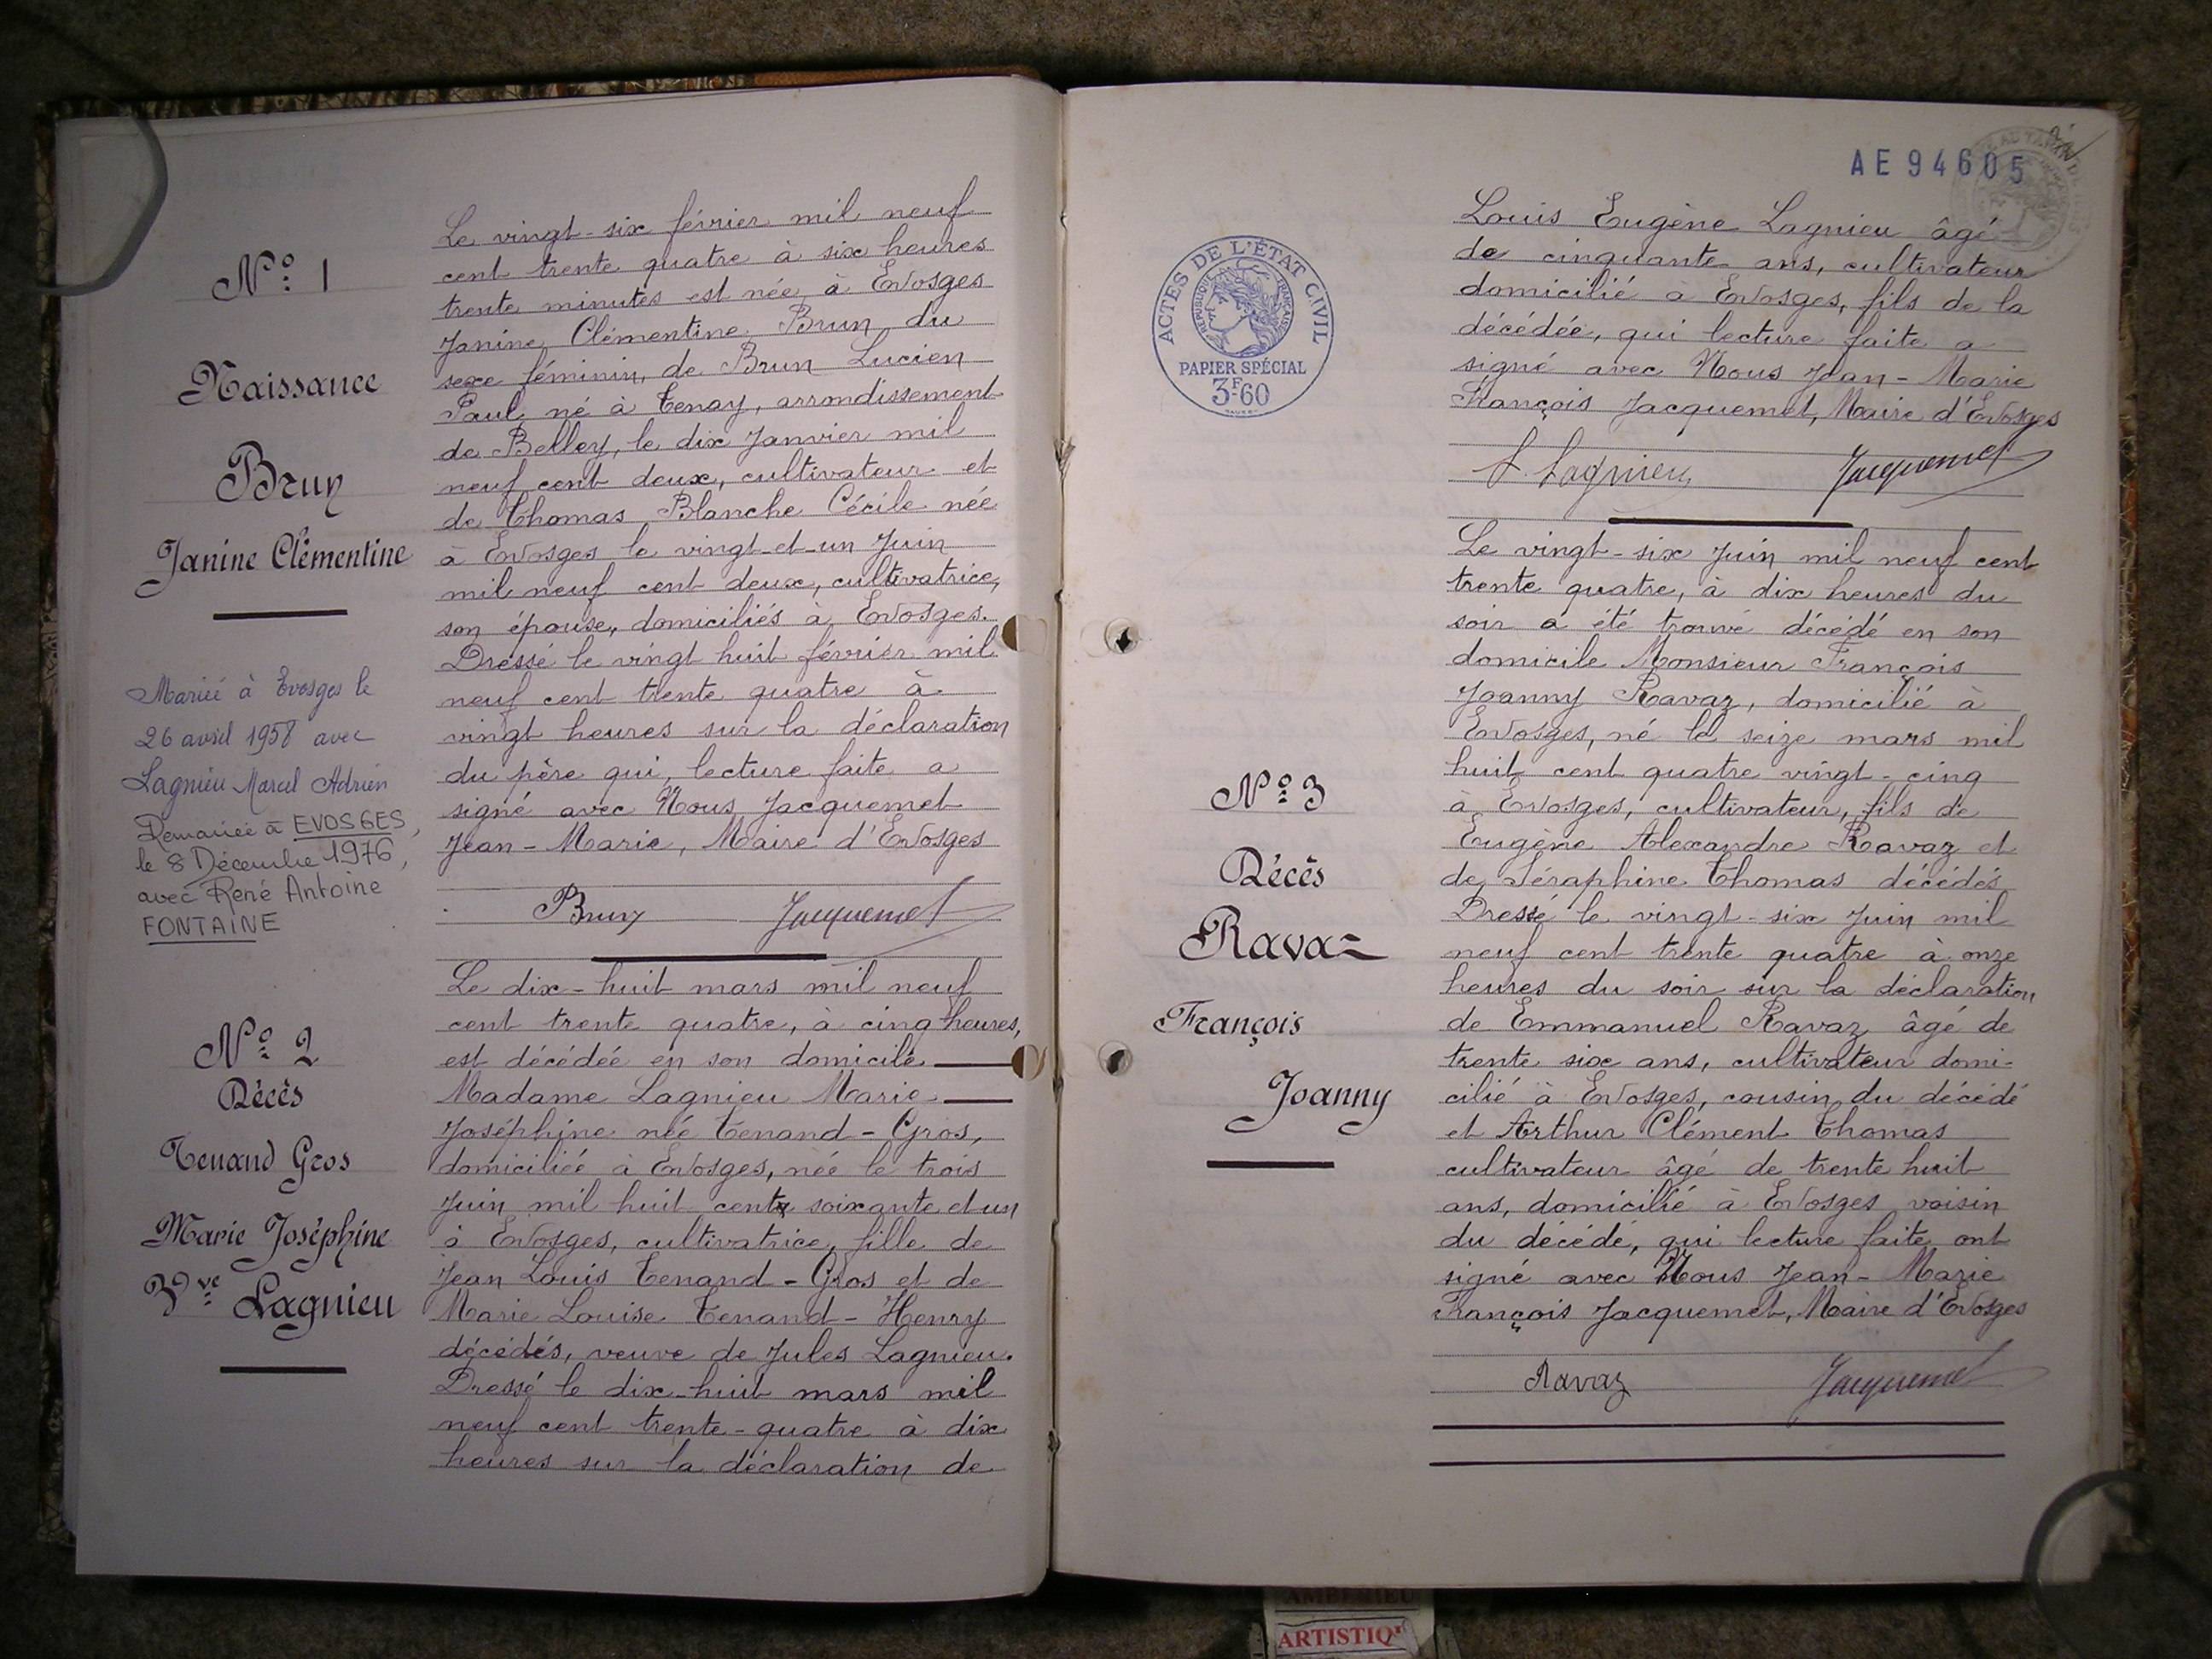 N° 1
Naissance
Brun
Janine Clémentine
Mariée à Evosges le
26 avril 1958 avec
Lagnieu Marcel Adrien
Remariée à EVOSGES,
le 8 Décembre 1976,
avec René Antoine
FONTAINE
Le vingt-six février mil neuf
cent trente quatre à six heures
trente minutes est née à Evosges
Janine Clémentine Brun du
sexe féminin, de Brun Lucien
Paul, né à Tenay, arrondissement
de Belley, le dix Janvier mil
neuf cent deux, cultivateur et
de Thomas Blanche Cécile née
à Evosges le vingt-et-un Juin
mil neuf cent deux, cultivatrice,
son épouse, domiciliés à Evosges.
Dressé le vingt huit février mil
neuf cent trente quatre à
vingt heures sur la déclaration
du père qui, lecture faite a
signé avec Nous Jacquemet
Jean-Marie, Maire d'Evosges
Brun Jacquemet
N° 2
Décès
Tenand Gros
Marie Joséphine
Vve Lagnieu
Le dix-huit mars mil neuf
cent trente quatre, à cinq heures,
est décédée en son domicile
Madame Lagnieu Marie
Joséphine née Tenand-Gros,
domiciliée à Evosges, née le trois
Juin mil huit cent soixante et un
à Evosges, cultivatrice, fille de
Jean Louis Tenand-Gros et de
Marie Louise Tenand-Henry
décédés, veuve de Jules Lagnieu.
Dressé le dix-huit mars mil
neuf cent trente-quatre à dix
heures sur la déclaration de
AE 94605
ACTES DE L'ÉTAT CIVIL
RÉPUBLIQUE FRANÇAISE
PAPIER SPÉCIAL
3F60
Louis Eugène Lagnieu âgé
de cinquante ans, cultivateur
domicilié à Evosges, fils de la
décédée, qui lecture faite a
signé avec Nous Jean-Marie
François Jacquemet, Maire d'Evosges
L. Lagnieu Jacquemet
N° 3
Décès
Ravaz
François
Joanny
Le vingt-six Juin mil neuf cent
trente quatre, à dix heures du
soir a été trouvé décédé en son
domicile Monsieur François
Joanny Ravaz, domicilié à
Evosges, né le seize mars mil
huit cent quatre vingt-cinq
à Evosges, cultivateur, fils de
Eugène Alexandre Ravaz et
de Séraphine Thomas décédés
Dressé le vingt-six Juin mil
neuf cent trente quatre à onze
heures du soir sur la déclaration
de Emmanuel Ravaz âgé de
trente six ans, cultivateur domi-
cilié à Evosges, cousin du décédé
et Arthur Clément Thomas
cultivateur âgé de trente huit
ans, domicilié à Evosges voisin
du décédé, qui lecture faite ont
signé avec Nous Jean-Marie
François Jacquemet, Maire d'Evosges
Ravaz Jacquemet
ARTISTIQ